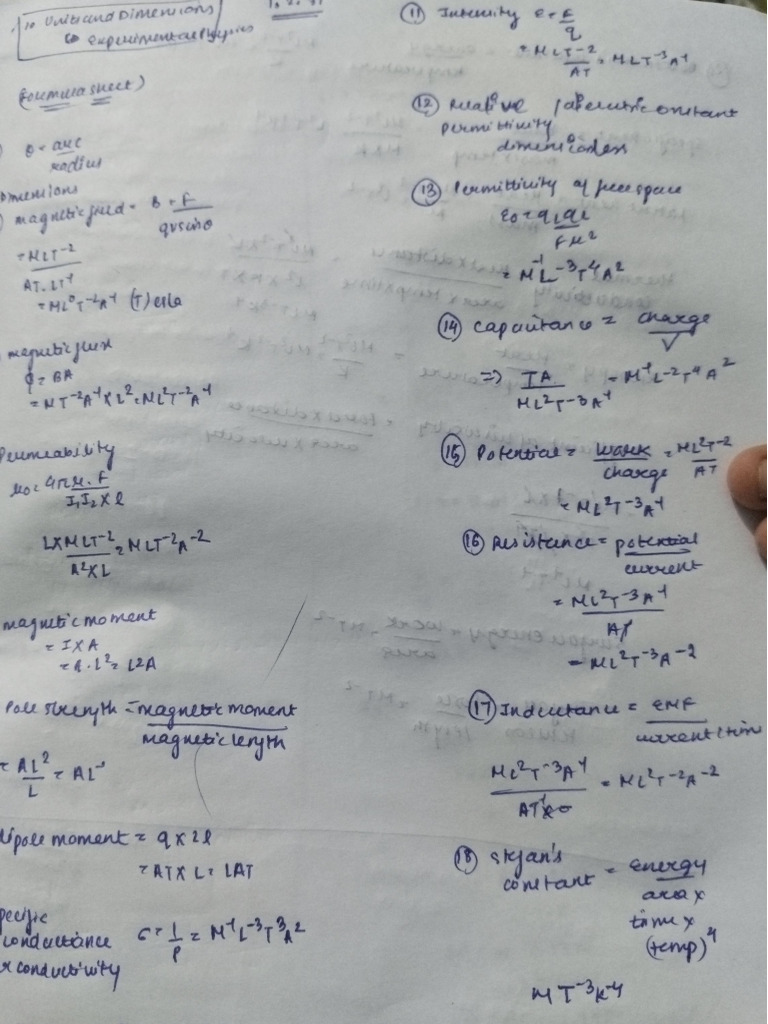 1. Units and Dimensions
& experimental physics
(formula sheet)
θ = arc
radius
Dimensions
magnetic field = B = F
qvsinθ
= MLT-2
AT.LT-1
= ML0T-2A-1 (T) esla
magnetic flux
ϕ = BA
= MT-2A-1 x L2 = ML2T-2A-1
Permeability
μ0 = 4πr.F
I1I2 x l
LxMLT-2 = MLT-2A-2
A2xL
magnetic moment
= I x A
= A.L2 = L2A
Pole strength = magnetic moment
magnetic length
= AL2 = AL1
L
dipole moment = q x 2l
= AT x L = LAT
specific
conductance σ = 1 = M-1L-3T3A2
or conductivity ρ
(11) Intensity E = F
q
= MLT-2 = MLT-3A-1
AT
(12) Relative / dielectric constant
permittivity
dimensionless
(13) Permittivity of free space
ε0 = q1q2
Fr2
= M-1L-3T4A2
(14) Capacitance = charge
V
=> TA = M-1L-2T4A2
ML2T-3A-1
(15) Potential = work = ML2T-2
charge AT
= ML2T-3A-1
(16) Resistance = potential
current
= ML2T-3A-1
A
= ML2T-3A-2
(17) Inductance = EMF
current/time
ML2T-3A-1 = ML2T-2A-2
AT-1
(18) Stefan's = energy
constant area x
time x
(temp)4
MT-3K-4